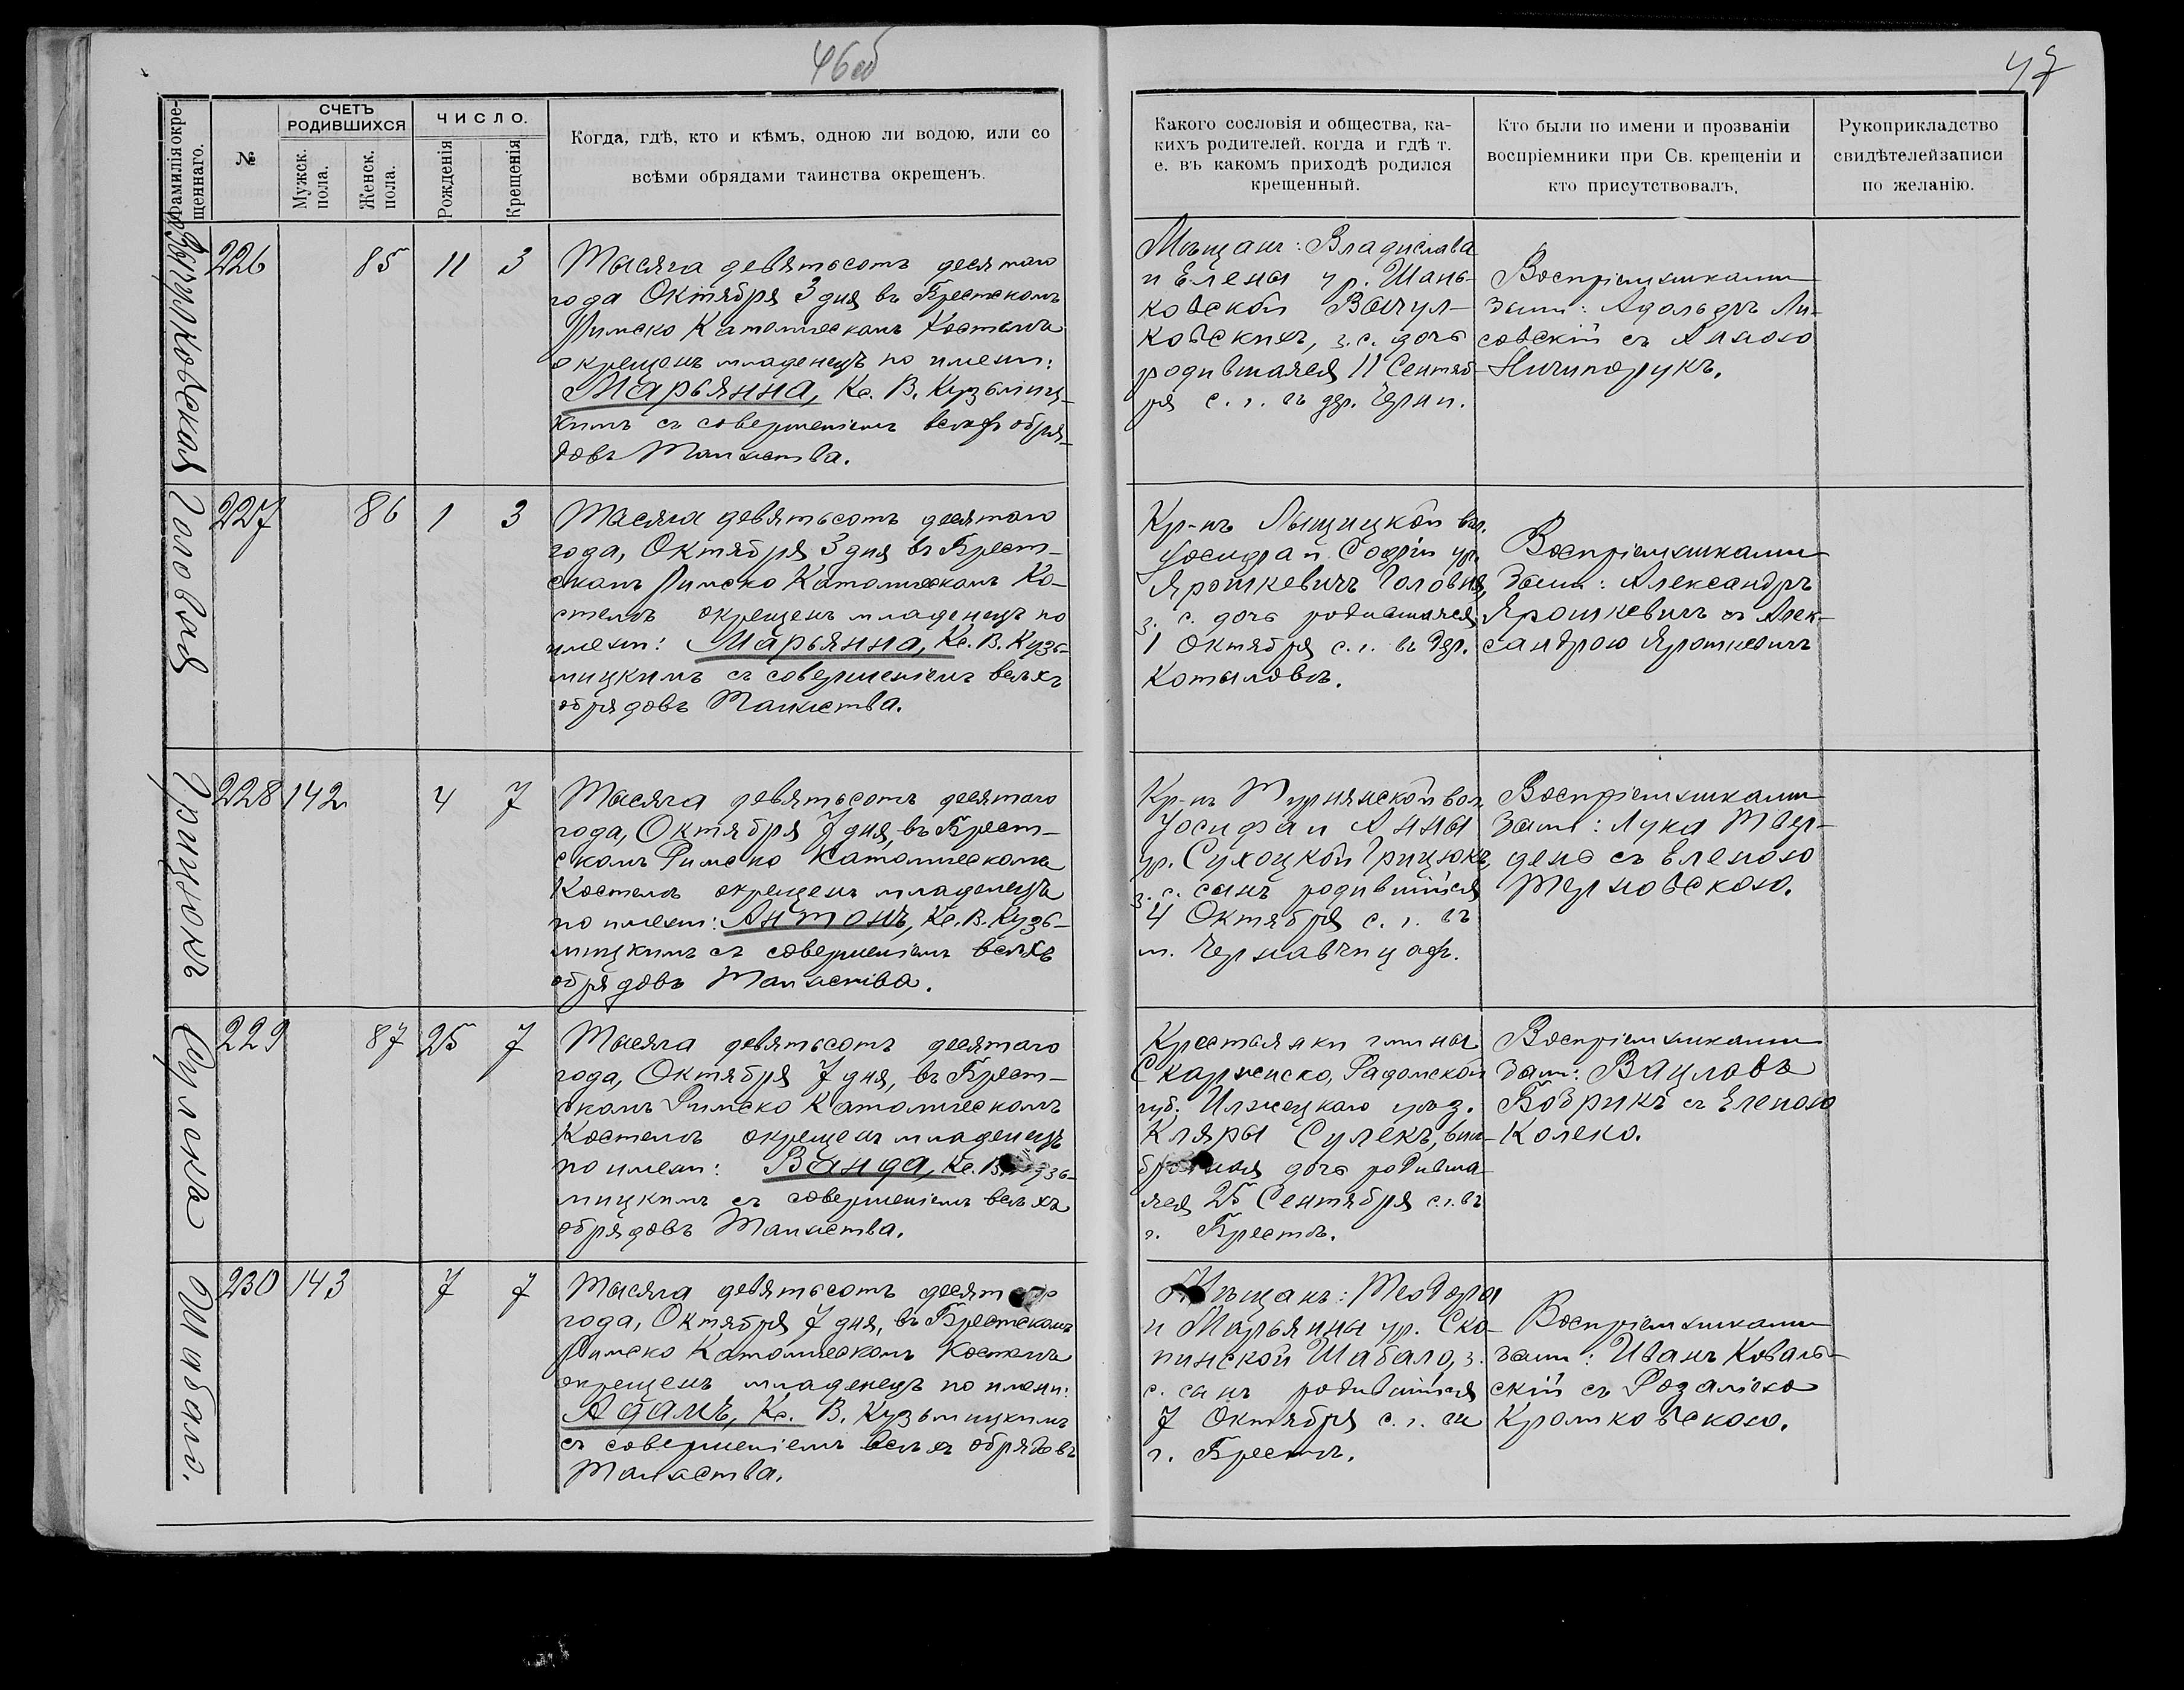 46об
47
Фамилія окре-
щеннаго.
№
СЧЕТЪ
РОДИВШИХСЯ
Мужск.
пола.
Женск.
пола.
ЧИСЛО.
Рожденія
Крещенія
Когда, гдѣ, кто и кѣмъ, одною ли водою, или со
всѣми обрядами таинства окрещенъ.
Какого сословія и общества, ка-
кихъ родителей, когда и гдѣ т.
е. въ какомъ приходѣ родился
крещенный.
Кто были по имени и прозванію
воспріемники при Св. крещеніи и
кто присутствовалъ.
Рукоприкладство
свидѣтелей записи
по желанію.
226 85 11 3
Тысяча девятьсотъ десятаго
года Октября 3 дня въ Брестскомъ
Римско Католическомъ Костелѣ
окрещенъ младенецъ по имени:
Марьянна, Кс. В. Кузьмиц-
кимъ съ совершеніемъ всѣхъ обря-
довъ Таинства.
Мѣщанъ: Владислава
и Елены ур. Шань-
ковской Вачул-
ковскихъ, з. с. дочь
родившаяся 11 Сентяб-
ря с. г. въ дер. Черни.
Воспріемниками
были: Адольфъ Ли-
совскій съ Анною
Ничипорукъ.
Головня
227 86 1 3
Тысяча девятьсотъ десятаго
года, Октября 3 дня въ Брест-
скомъ Римско Католическомъ Ко-
стелѣ окрещенъ младенецъ по
имени: Марьянна, Кс. В. Кузь-
мицкимъ съ совершеніемъ всѣхъ
обрядовъ Таинства.
Кр-нъ Лыщицкой вол.
Іосифа и Софіи ур.
Ярошкевичъ Головня,
з. с. дочь родившаяся
1 Октября с. г. въ дер.
Котыловѣ.
Воспріемниками
были: Александръ
Ярошкевичъ съ Алек-
сандрою Ярошкевичъ
Грицюкъ
228 142 4 7
Тысяча девятьсотъ десятаго
года, Октября 7 дня, въ Брест-
скомъ Римско Католическомъ
Костелѣ окрещенъ младенецъ
по имени: Антонъ, Кс. В. Кузь-
мицкимъ съ совершеніемъ всѣхъ
обрядовъ Таинства.
Кр-нъ Турнянской вол.
Іосифа и Анны
ур. Сухоцкой Грицюкъ,
з. с. сынъ родившійся
4 Октября с. г. въ
м. Чернавчицахъ.
Воспріемниками
были: Лука Твер-
день съ Еленою
Терновскою.
Сулекъ
229 87 25 7
Тысяча девятьсотъ десятаго
года, Октября 7 дня, въ Брест-
скомъ Римско Католическомъ
Костелѣ окрещенъ младенецъ
по имени: Ванда, Кс. В. Кузь-
мицкимъ съ совершеніемъ всѣхъ
обрядовъ Таинства.
Крестьянки гмины
Скаржиско, Радомской
губ. Илжецкаго уѣзд.
Кляры Сулекъ, вне-
брачная дочь родивша-
яся 25 Сентября с. г. въ
г. Брестѣ.
Воспріемниками
были: Вацлавъ
Бобрикъ съ Еленою
Колеко.
Шабало.
230 143 7 7
Тысяча девятьсотъ десятаго
года, Октября 7 дня, въ Брестскомъ
Римско Католическомъ Костелѣ
окрещенъ младенецъ по имени:
Адамъ, Кс. В. Кузьмицкимъ
съ совершеніемъ всѣхъ обрядовъ
Таинства.
Мѣщанъ: Теодора
и Марьянны ур. Ско-
пинской Шабало, з.
с. сынъ родившійся
7 Октября с. г. въ
г. Брестѣ.
Воспріемниками
были: Иванъ Коваль-
скій съ Розаліею
Кромковскою.